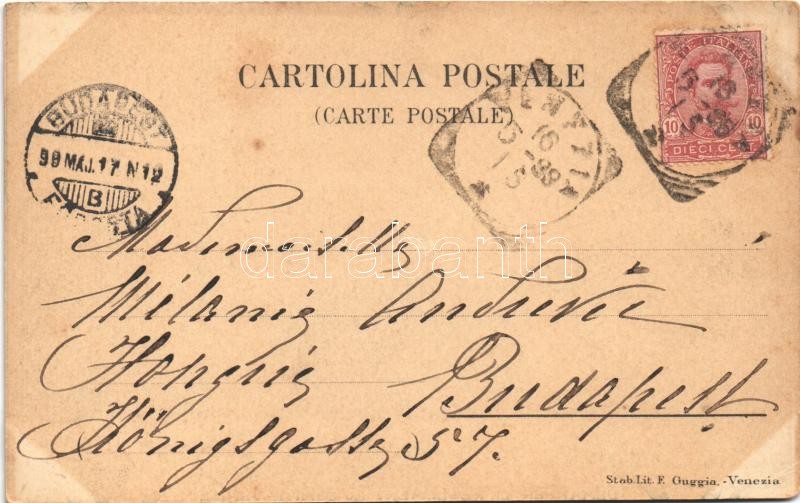 CARTOLINA POSTALE
(CARTE POSTALE)
POSTE ITALIANE
10 10
DIECI CENT.
VENEZIA
16
5-98
BUDAPEST
98 MÁJ. 17 N 12
B
darabanth
Mademoiselle
Mélanie
Hongrie Budapest
Königsgasse 57.
Stab. Lit. F. Guggia. - Venezia